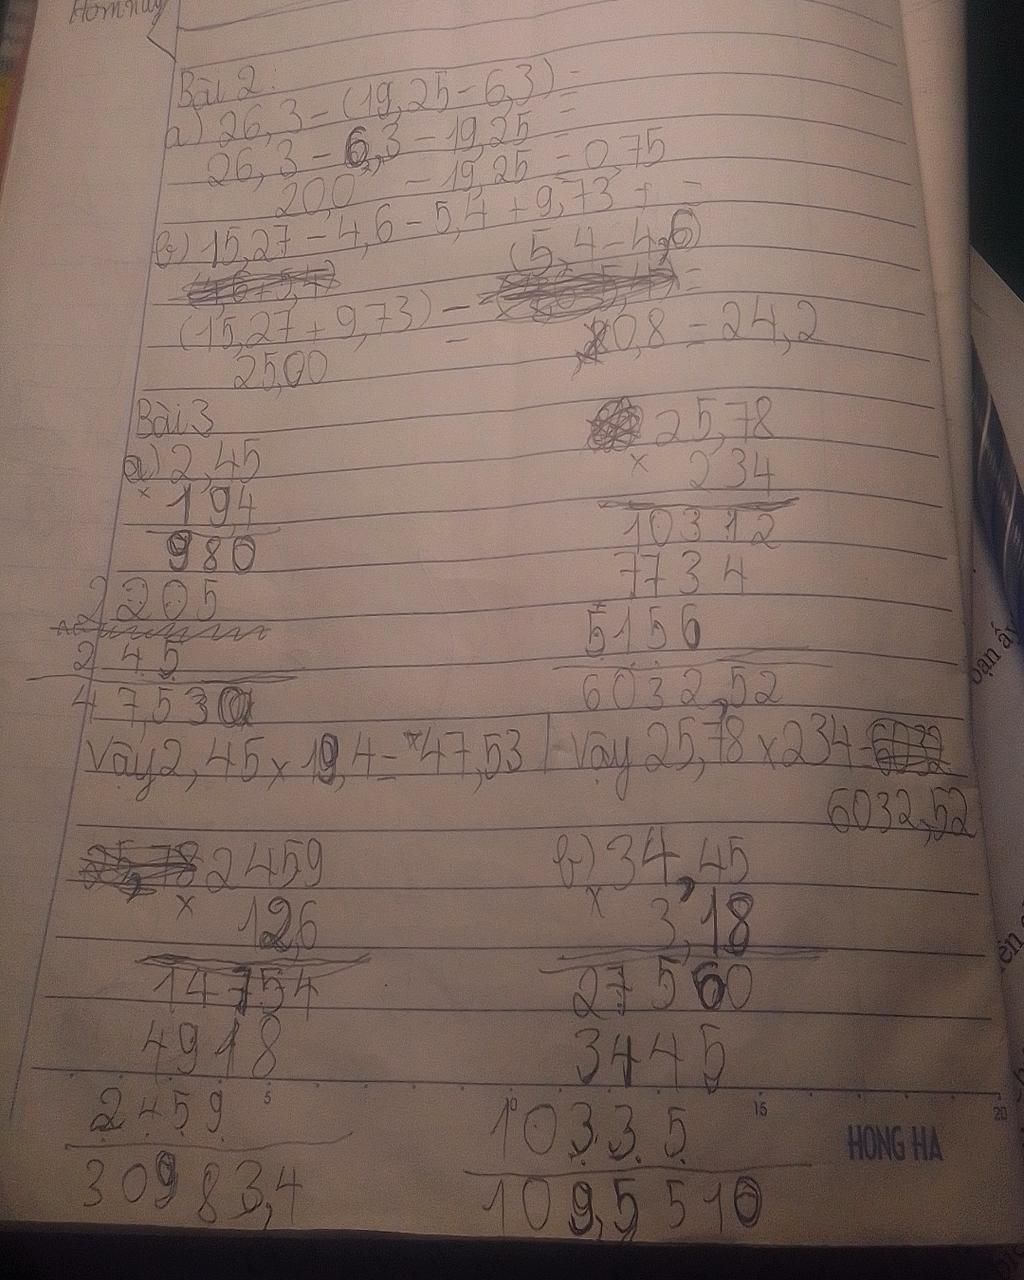 Bài 2.
a) 26,3 - (19,25 - 6,3) =
26,3 - 6,3 - 19,25 =
20,0 - 19,25 = 0,75
b) 15,27 - 4,6 - 5,4 + 9,73 + =
(5,4 - 4,6)
(15,27 + 9,73) - =
25,00 - 0,8 = 24,2
Bài 3
a) 2,45
× 19,4
980
2205
245
47,530
Vậy 2,45 × 19,4 = 47,53
25,78
× 234
10312
7734
5156
6032,52
Vậy 25,78 × 234 =
6032,52
2459
× 12,6
14754
4918
2459
30983,4
b) 34,45
× 3,18
27560
3445
10335
109,5510
5 10 15 20
HONG HA
bạn ấy